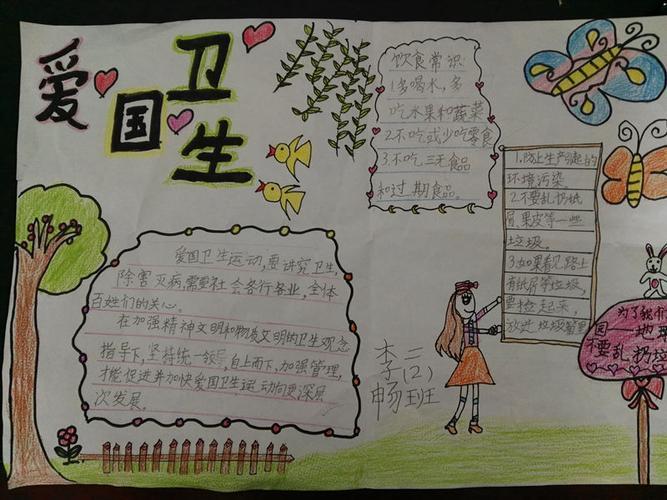 爱国卫生
饮食常识:
1.多喝水,多
吃水果和蔬菜
2.不吃或少吃零食
3.不吃三无食品
和过期食品。
1.防止生产引起的
环境污染。
2.不要乱扔纸
屑、果皮等一些
垃圾。
3.如果看见路上
有纸屑等垃圾,
要捡起来,
放进垃圾箱里
爱国卫生运动,要讲究卫生,
除害灭病,需要社会各行各业,全体
百姓们的关心。
在加强精神文明和物质文明的卫生观念
指导下,坚持统一领导,自上而下,加强管理,
才能促进并加快爱国卫生运动向更深层
次发展。
李畅
三(2)班
为了我们
不要乱扔垃